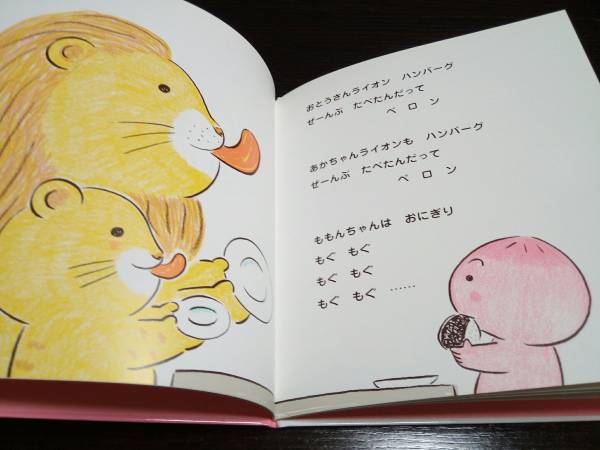 おとうさんライオン ハンバーグ
ぜーんぶ たべたんだって
ペ ロ ン
あかちゃんライオンも ハンバーグ
ぜーんぶ たべたんだって
ペ ロ ン
ももんちゃんは おにぎり
もぐ もぐ
もぐ もぐ
もぐ もぐ ……